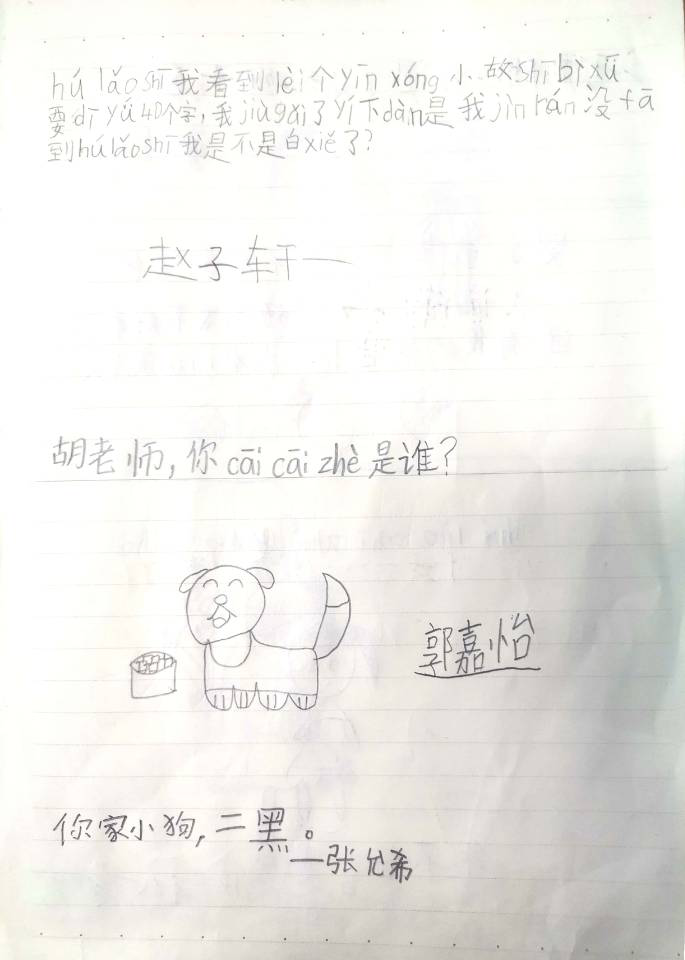 hú lǎo shī 我看到 lèi 个 yīn xóng 小故 shī bì xū
要 dī yú 40个字，我 jià gǎi 了 yí 下 dàn 是 我 jìn rán 没 fā
到 hú lǎo shī 我是不是白 xiě 了？
赵子轩一
胡老师，你 cāi cāi zhè 是谁？
郭嘉怡
你家小狗，二黑。
一张允希